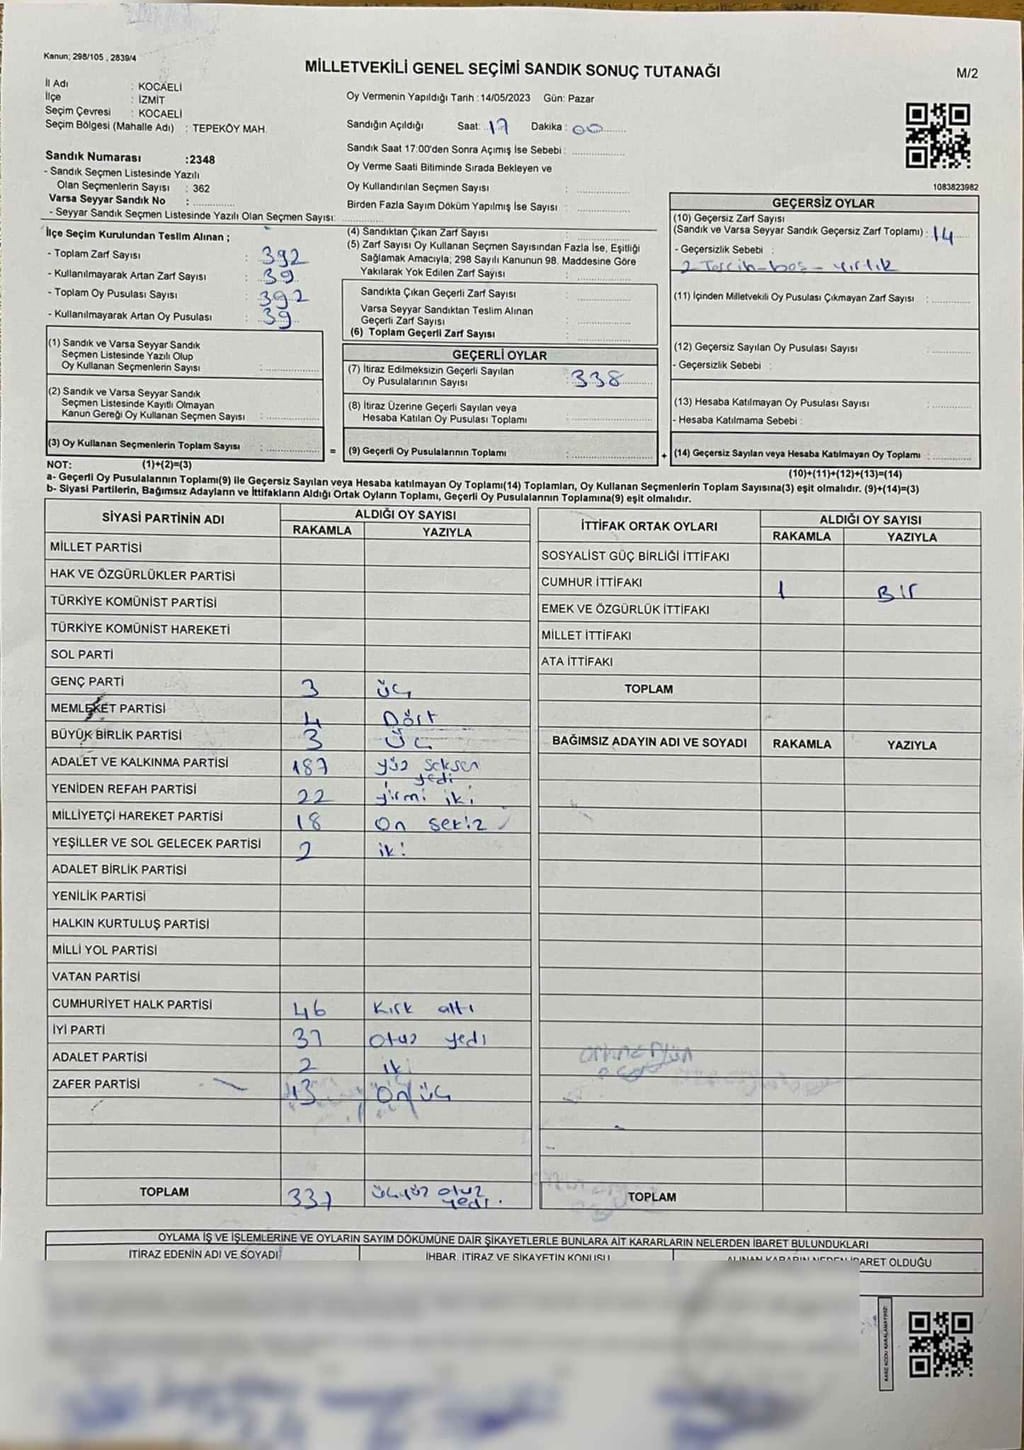 Kanun; 298/105 , 2839/4
MİLLETVEKİLİ GENEL SEÇİMİ SANDIK SONUÇ TUTANAĞI
M/2
İl Adı : KOCAELİ
İlçe : İZMİT
Seçim Çevresi : KOCAELİ
Seçim Bölgesi (Mahalle Adı) : TEPEKÖY MAH.
Oy Vermenin Yapıldığı Tarih :14/05/2023 Gün: Pazar
Sandığın Açıldığı Saat: 17 Dakika : 00
Sandık Saat 17:00'den Sonra Açımış İse Sebebi :
Oy Verme Saati Bitiminde Sırada Bekleyen ve
Oy Kullandırılan Seçmen Sayısı :
Birden Fazla Sayım Döküm Yapılmış İse Sayısı :
Sandık Numarası :2348
- Sandık Seçmen Listesinde Yazılı
Olan Seçmenlerin Sayısı : 362
Varsa Seyyar Sandık No :
- Seyyar Sandık Seçmen Listesinde Yazılı Olan Seçmen Sayısı:
1083823982
İlçe Seçim Kurulundan Teslim Alınan ;
- Toplam Zarf Sayısı : 392
- Kullanılmayarak Artan Zarf Sayısı : 39
- Toplam Oy Pusulası Sayısı : 392
- Kullanılmayarak Artan Oy Pusulası : 39
(1) Sandık ve Varsa Seyyar Sandık
Seçmen Listesinde Yazılı Olup
Oy Kullanan Seçmenlerin Sayısı :
(2) Sandık ve Varsa Seyyar Sandık
Seçmen Listesinde Kayıtlı Olmayan
Kanun Gereği Oy Kullanan Seçmen Sayısı :
(3) Oy Kullanan Seçmenlerin Toplam Sayısı :
(4) Sandıktan Çıkan Zarf Sayısı :
(5) Zarf Sayısı Oy Kullanan Seçmen Sayısından Fazla İse, Eşitliği
Sağlamak Amacıyla; 298 Sayılı Kanunun 98. Maddesine Göre
Yakılarak Yok Edilen Zarf Sayısı :
Sandıkta Çıkan Geçerli Zarf Sayısı :
Varsa Seyyar Sandıktan Teslim Alınan
Geçerli Zarf Sayısı :
(6) Toplam Geçerli Zarf Sayısı :
GEÇERLİ OYLAR
(7) İtiraz Edilmeksizin Geçerli Sayılan
Oy Pusulalarının Sayısı : 338
(8) İtiraz Üzerine Geçerli Sayılan veya
Hesaba Katılan Oy Pusulası Toplamı :
= (9) Geçerli Oy Pusulalarının Toplamı :
GEÇERSİZ OYLAR
(10) Geçersiz Zarf Sayısı
(Sandık ve Varsa Seyyar Sandık Geçersiz Zarf Toplamı) : 14
- Geçersizlik Sebebi :
2 Tercih - boş - yırtık
(11) İçinden Milletvekili Oy Pusulası Çıkmayan Zarf Sayısı :
(12) Geçersiz Sayılan Oy Pusulası Sayısı :
- Geçersizlik Sebebi :
(13) Hesaba Katılmayan Oy Pusulası Sayısı :
- Hesaba Katılmama Sebebi :
+ (14) Geçersiz Sayılan veya Hesaba Katılmayan Oy Toplamı :
NOT: (1)+(2)=(3)
(10)+(11)+(12)+(13)=(14)
a- Geçerli Oy Pusulalarının Toplamı(9) ile Geçersiz Sayılan veya Hesaba katılmayan Oy Toplamı(14) Toplamları, Oy Kullanan Seçmenlerin Toplam Sayısına(3) eşit olmalıdır. (9)+(14)=(3)
b- Siyasi Partilerin, Bağımsız Adayların ve İttifakların Aldığı Ortak Oyların Toplamı, Geçerli Oy Pusulalarının Toplamına(9) eşit olmalıdır.
SİYASİ PARTİNİN ADI ALDIĞI OY SAYISI
RAKAMLA YAZIYLA
MİLLET PARTİSİ
HAK VE ÖZGÜRLÜKLER PARTİSİ
TÜRKİYE KOMÜNİST PARTİSİ
TÜRKİYE KOMÜNİST HAREKETİ
SOL PARTİ
GENÇ PARTİ 3 üç
MEMLEKET PARTİSİ 4 Dört
BÜYÜK BİRLİK PARTİSİ 3 üç
ADALET VE KALKINMA PARTİSİ 187 yüz seksen
yedi
YENİDEN REFAH PARTİSİ 22 yirmi iki
MİLLİYETÇİ HAREKET PARTİSİ 18 On sekiz
YEŞİLLER VE SOL GELECEK PARTİSİ 2 iki
ADALET BİRLİK PARTİSİ
YENİLİK PARTİSİ
HALKIN KURTULUŞ PARTİSİ
MİLLİ YOL PARTİSİ
VATAN PARTİSİ
CUMHURİYET HALK PARTİSİ 46 Kırk altı
İYİ PARTİ 37 Otuz yedi
ADALET PARTİSİ 2 iki
ZAFER PARTİSİ 13 On üç
TOPLAM 337 üçyüz otuz
yedi.
İTTİFAK ORTAK OYLARI ALDIĞI OY SAYISI
RAKAMLA YAZIYLA
SOSYALİST GÜÇ BİRLİĞİ İTTİFAKI
CUMHUR İTTİFAKI 1 Bir
EMEK VE ÖZGÜRLÜK İTTİFAKI
MİLLET İTTİFAKI
ATA İTTİFAKI
TOPLAM
BAĞIMSIZ ADAYIN ADI VE SOYADI RAKAMLA YAZIYLA
TOPLAM
OYLAMA İŞ VE İŞLEMLERİNE VE OYLARIN SAYIM DÖKÜMÜNE DAİR ŞİKAYETLERLE BUNLARA AİT KARARLARIN NELERDEN İBARET BULUNDUKLARI
İTİRAZ EDENİN ADI VE SOYADI İHBAR, İTİRAZ VE ŞİKAYETİN KONUSU ALINAN KARARIN NEDEN İBARET OLDUĞU